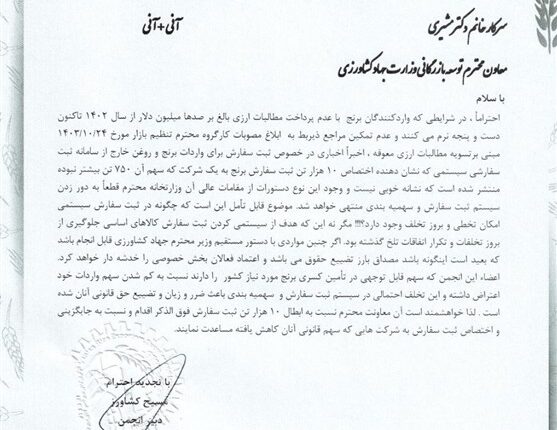 سرکار خانم دکتر مشیری
آنی+آنی
معاون محترم توسعه بازرگانی وزارت جهاد کشاورزی
با سلام
احتراماً ، در شرایطی که واردکنندگان برنج با عدم پرداخت مطالبات ارزی بالغ بر صدها میلیون دلار از سال ۱۴۰۲ تاکنون
دست و پنجه نرم می کنند و عدم تمکین مراجع ذیربط به ابلاغ مصوبات کارگروه محترم تنظیم بازار مورخ ۱۴۰۳/۱۰/۲۴
مبنی برتسویه مطالبات ارزی معوقه ، اخیراً اخباری در خصوص ثبت سفارش برای واردات برنج و روغن خارج از سامانه ثبت
سفارشی سیستمی که نشان دهنده اختصاص ۱۰ هزار تن ثبت سفارش برنج به یک شرکت که سهم آن ۷۵۰ تن بیشتر نبوده
منتشر شده است که نشانه خوبی نیست و وجود این نوع دستورات از مقامات عالی آن وزارتخانه محترم قطعاً به دور زدن
سیستم ثبت سفارش و سهمیه بندی منتهی خواهد شد. موضوع قابل تأمل این است که چگونه در ثبت سفارش سیستمی
امکان تخطی و بروز تخلف وجود دارد؟!!! مگر نه این که هدف از سیستمی کردن ثبت سفارش کالاهای اساسی جلوگیری از
بروز تخلفات و تکرار اتفاقات تلخ گذشته بود. اگر چنین مواردی با دستور مستقیم وزیر محترم جهاد کشاورزی قابل انجام باشد
که بعید است اینگونه باشد مصداق بارز تضییع حقوق می باشد و اعتماد فعالان بخش خصوصی را خدشه دار خواهد کرد.
اعضاء این انجمن که سهم قابل توجهی در تأمین کسری برنج مورد نیاز کشور را دارند نسبت به کم شدن سهم واردات خود
اعتراض داشته و این تخلف احتمالی در سیستم ثبت سفارش و سهمیه بندی باعث ضرر و زیان و تضییع حق قانونی آنان شده
است . لذا خواهشمند است آن معاونت محترم نسبت به ابطال ۱۰ هزار تن ثبت سفارش فوق الذکر اقدام و نسبت به جایگزینی
و اختصاص ثبت سفارش به شرکت هایی که سهم قانونی آنان کاهش یافته مساعدت نمایند.
با تجدید احترام
مسیح کشاورز
دبیر انجمن